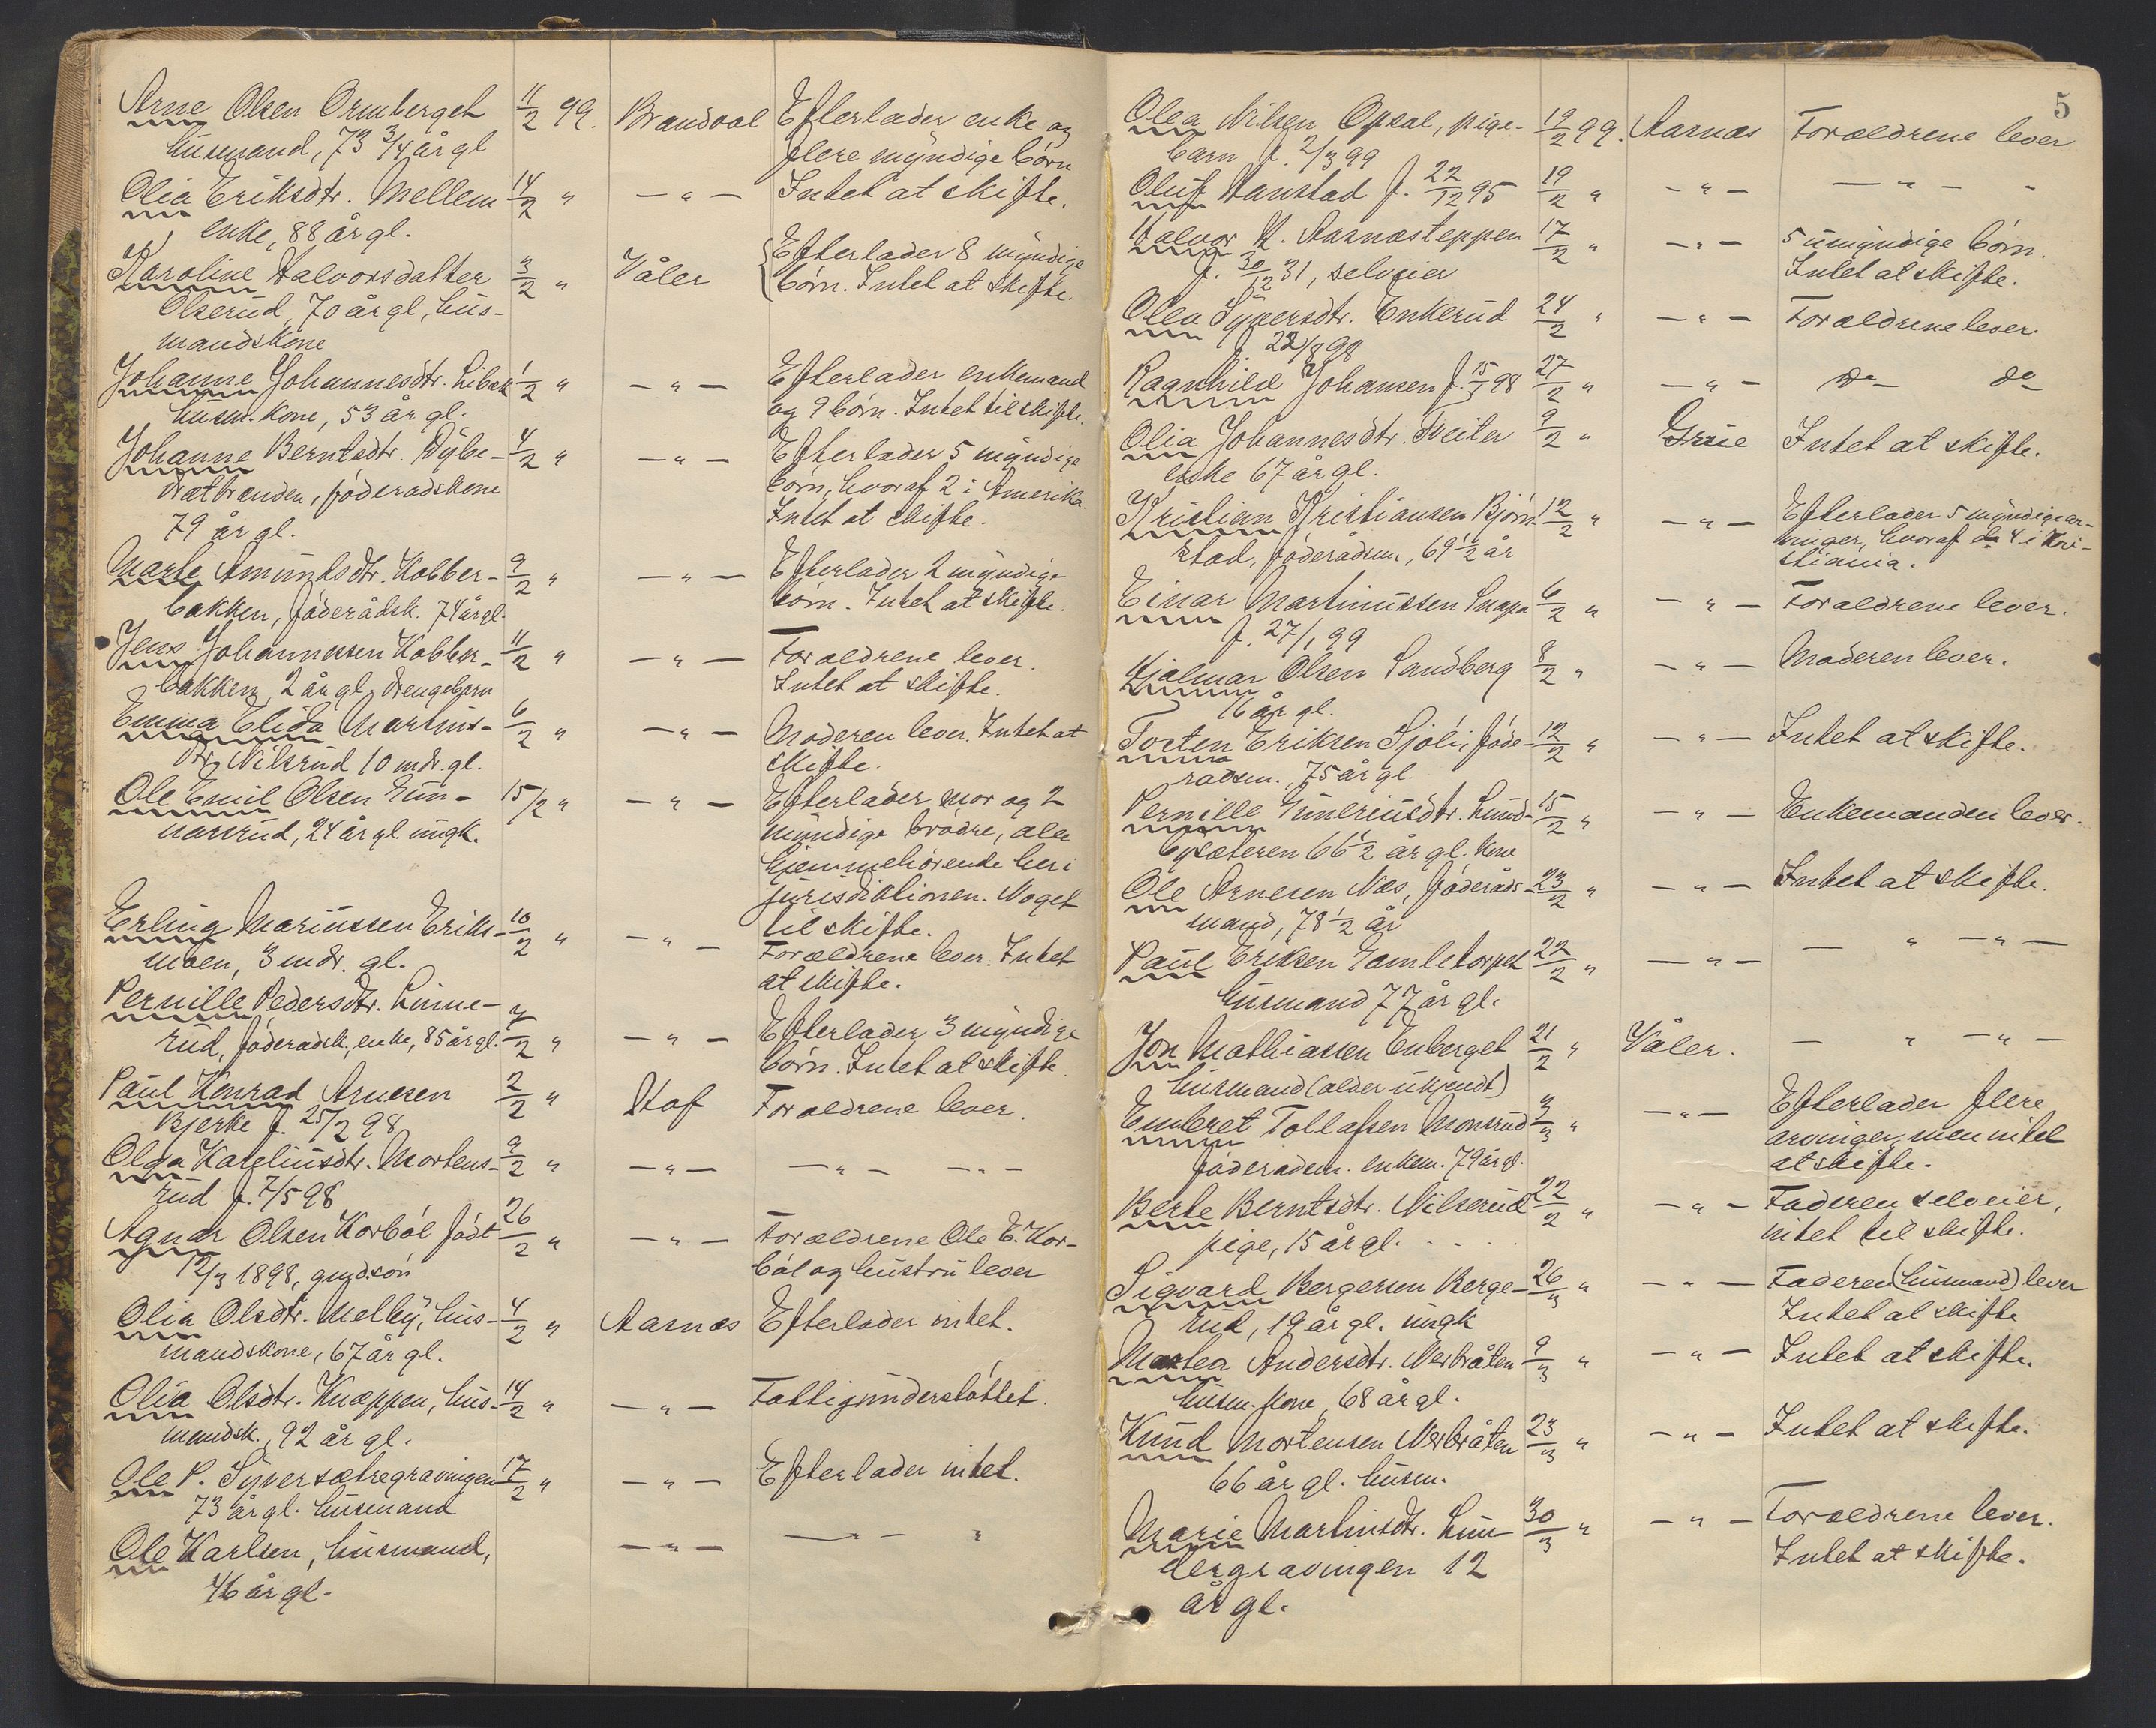 Arne Olsen Ormberget 11/2 99. Brandval Efterlader enke og
husmand, 73 3/4 år gl flere myndige børn
Olia Eriksdtr. Mellem 14/2 " — " — Intet at skifte.
enke, 88 år gl.
Karoline Halvorsdatter 3/2 " Våler Efterlader 8 myndige
Olserud, 70 år gl, hus- børn. Intet at skifte.
mandskone
Johanne Johannesdtr. Libæk 1/2 " — " — Efterlader enkemand
husm. kone, 53 år gl. og 9 børn. Intet til skifte.
Johanne Berntsdtr. Dybe- 4/2 " — " — Efterlader 5 myndige
drætbranden, føderadskone børn, hvoraf 2 i Amerika
79 år gl. Intet at skifte.
Marte Amundsdtr. Kobber- 9/2 " — " — Efterlader 2 myndige
bakken, føderådsk. 74 år gl. børn. Intet at skifte.
Jens Johannessen Kobber- 11/2 " — " — Forældrene lever.
bakken, 2 år gl, drengebarn Intet at skifte.
Emma Elida Martins- 6/2 " — " — Moderen lever. Intet at
dtr. Nilsrud 10 mdr. gl. skifte.
Ole Emil Olsen Gun- 15/2 " — " — Efterlader mor og 2
narsrud, 24 år gl. ungk. myndige brødre, alle
hjemmehørende her i
jurisdiktionen. Noget
til skifte.
Erling Mariussen Eriks- 10/2 " — " — Forældrene lever. Intet
moen, 3 mdr. gl. at skifte.
Pernille Pedersdtr. Linne-
rud, føderadsk, enke, 85 år gl. 7/2 " — " — Efterlader 3 myndige
børn. Intet at skifte.
Paul Konrad Arnesen 2/2 " Hof Forældrene lever.
Bjerke f. 25/2 98
Olga Kareliusdtr. Mortens- 9/2 " — " — — " — — " —
rud f. 7/5 98
Agnar Olsen Korbøl født 26/2 " — " — Forældrene Ole E. Kor-
12/3 1898, grdsøn bøl og hustru lever
Olia Olsdtr. Melby, hus- 4/2 " Aasnæs Efterlader intet.
mandskone, 67 år gl.
Olia Olsdtr. Knappen, hus- 14/2 " — " — Fattigunderstøttet.
mandsk. 92 år gl.
Ole P. Syversætregravningen 17/2 " — " — Efterlader intet.
73 år gl. husmand
Ole Karlsen, husmand, — " — — " — "
46 år gl.
5
Olea Nilsen Opsal, pige- 19/2 99. Aasnæs Forældrene lever
barn f. 2/3 99
Oluf Hanstad f. 22/12 95 19/2 " — " — — " — "
Halvor H. Aasnæsteppen 17/2 " — " — 5 umyndige børn.
f. 30/12 31, selveier Intet at skifte.
Olea Syversdtr. Enkerud 24/2 " — " — Forældrene lever.
f 22/8 98
Ragnhild Johansen f. 15/7 98 27/2 " — " — do — do
Olia Johannesdtr. Tveita 9/2 " Grue Intet at skifte.
enke 67 år gl.
Kristian Kristiansen Bjørn- 12/2 " — " — Efterlader 5 myndige ar-
stad, føderådsm, 69 1/2 år vinger, hvoraf 4 i Kri-
stiania.
Einar Martinussen Snapa 6/2 " — " — Forældrene lever.
f. 27/1 99
Hjalmar Olsen Sandberg 8/2 " — " — Moderen lever.
16 år gl.
Torten Eriksen Sjøli, føde- 12/2 " — " — Intet at skifte.
radsm., 75 år gl.
Pernille Gunleriusdtr. Lund- 15/2 " — " — Enkemanden lever.
bysæteren 66 1/2 år gl. kone
Ole Arnesen Næs, føderåds- 23/2 " — " — Intet at skifte.
mand, 78 1/2 år
Paul Eriksen Gamletorpet 22/2 " — " — — " — " —
husmand 77 år gl.
Jon Mathiassen Enberget 21/2 " Våler. — " — " —
husmand (alder ukjendt)
Embret Tollefsen Monsrud 3/3 " — " — Efterlader flere
føderadsm. enkem. 79 år gl. arvinger, men intet
at skifte.
Berte Berntsdtr. Nilserud 22/2 " — " — Faderen selveier,
pige, 15 år gl. intet til skifte.
Sigvard Bergersen Berge- 26/3 " — " — Faderen (husmand) lever
rud, 19 år gl. ungk Intet at skifte
Martea Andersdtr. Nerbråten 9/3 " — " — Intet at skifte.
husm. kone, 68 år gl.
Knud Mortensen Nerbråten 23/3 " — " — Intet at skifte.
66 år gl. husm.
Marie Martinsdtr. Lun- 30/3 " — " — Forældrene lever.
dergravingen 12 Intet at skifte.
år gl.